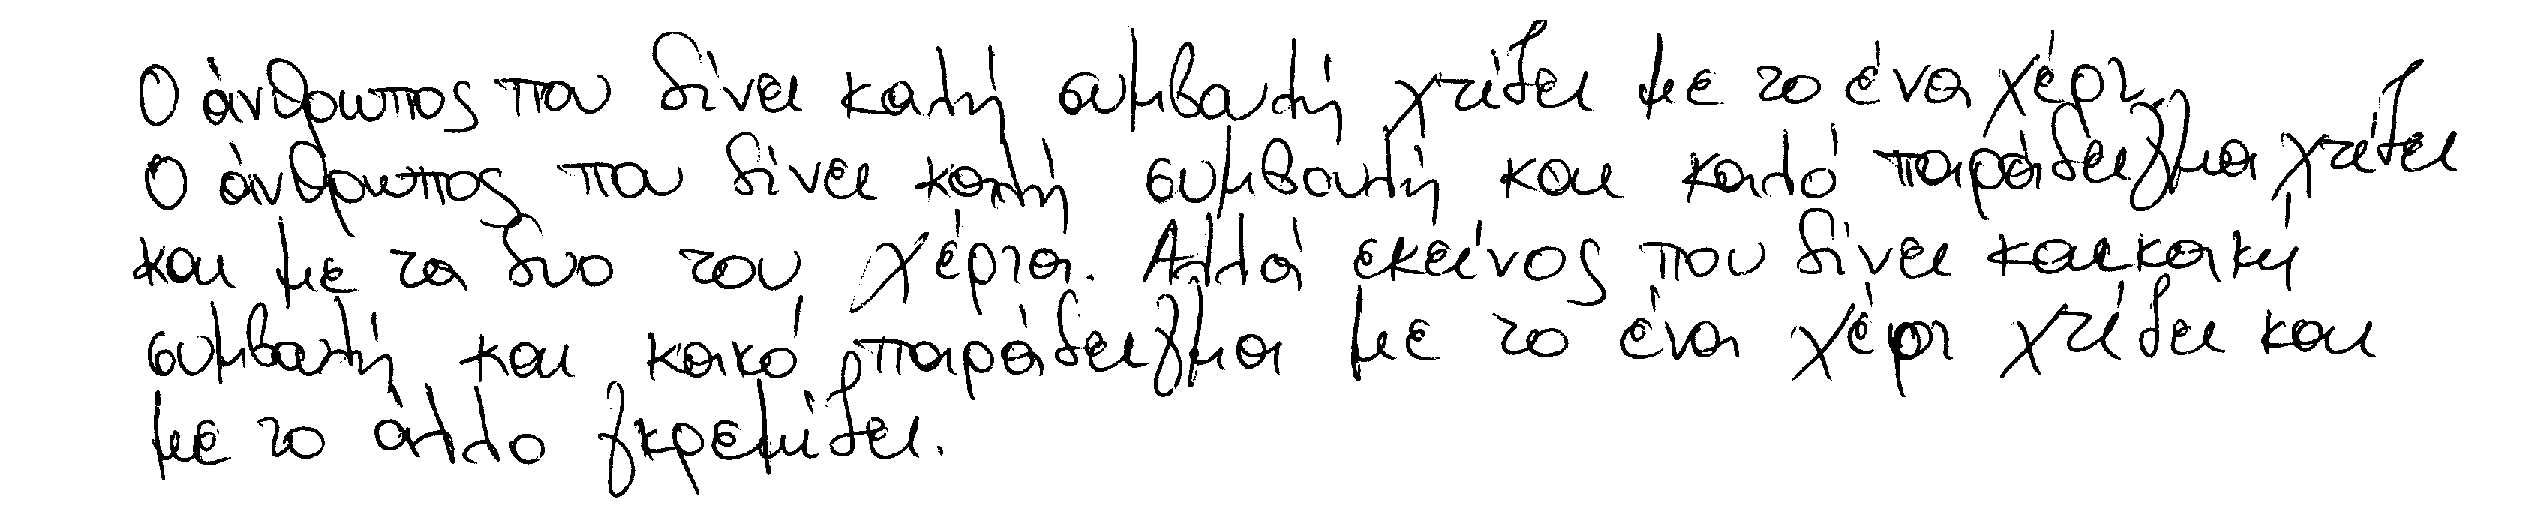 Ο άνθρωπος που δίνει καλή συμβουλή χτίζει με το ένα χέρι.
Ο άνθρωπος που δίνει καλή συμβουλή και καλό παράδειγμα χτίζει
και με τα δυο του χέρια. Αλλά εκείνος που δίνει και κακή
συμβουλή και κακό παράδειγμα με το ένα χέρι χτίζει και
με το άλλο γκρεμίζει.